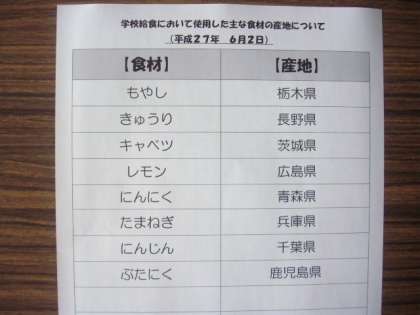 学校給食において使用した主な食材の産地について
（平成２７年　６月２日）
【食材】　【産地】
もやし　栃木県
きゅうり　長野県
キャベツ　茨城県
レモン　広島県
にんにく　青森県
たまねぎ　兵庫県
にんじん　千葉県
ぶたにく　鹿児島県